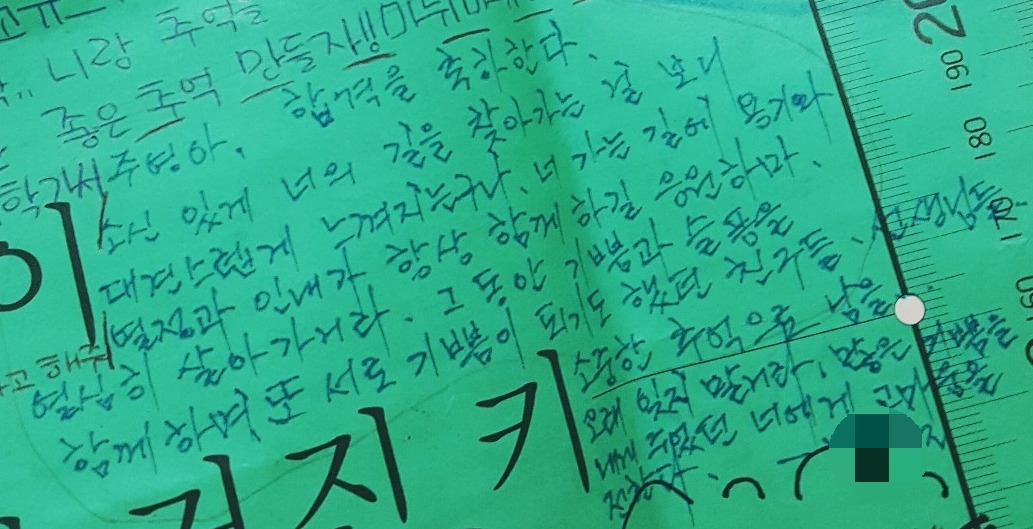 니랑 추억을
좋은 추억 만들자!!
주영아. 합격을 축하한다.
소신 있게 너의 길을 찾아가는 걸 보니
대견스럽게 느껴지는구나. 너 가는 길에 용기와
열정과 인내가 항상 함께 하길 응원하마.
열심히 살아가거라. 그 동안 기쁨과 슬픔을
함께 하며 또 서로 기쁨이 되기도 했던 친구들, 선생님들
소중한 추억으로 남을
오래 잊지 말거라. 많은 기쁨을
내게 주었던 너에게 고마움을
전한다.
이
지 키
20
190
180
170